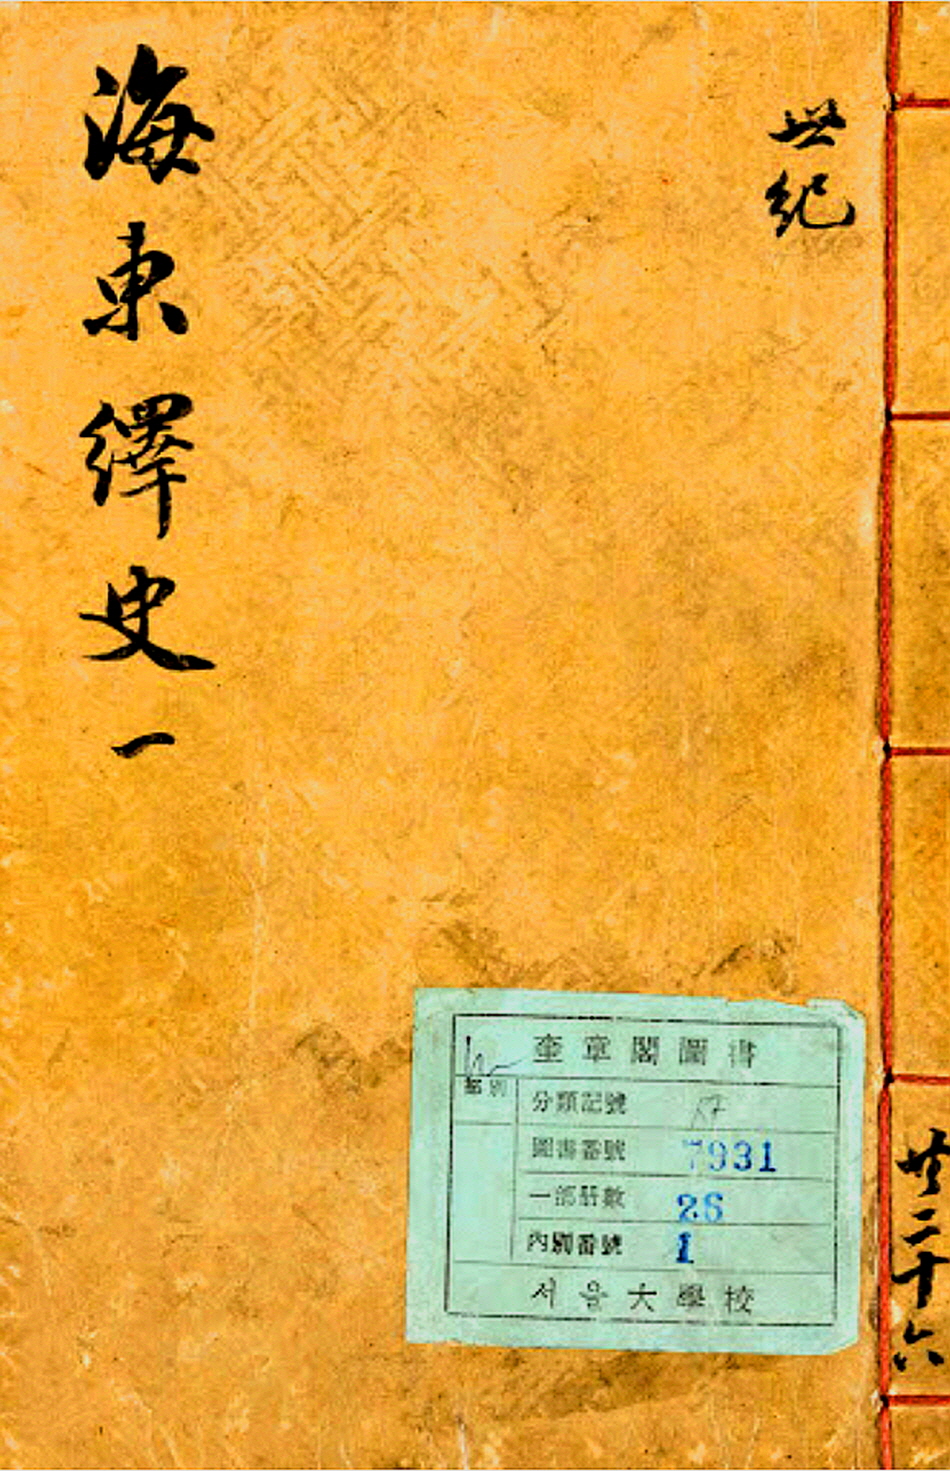 世紀
海東繹史 一
共二十六
奎章閣圖書
部別
分類記號
圖書番號 7931
一部册數 26
內別番號 1
서울大學校